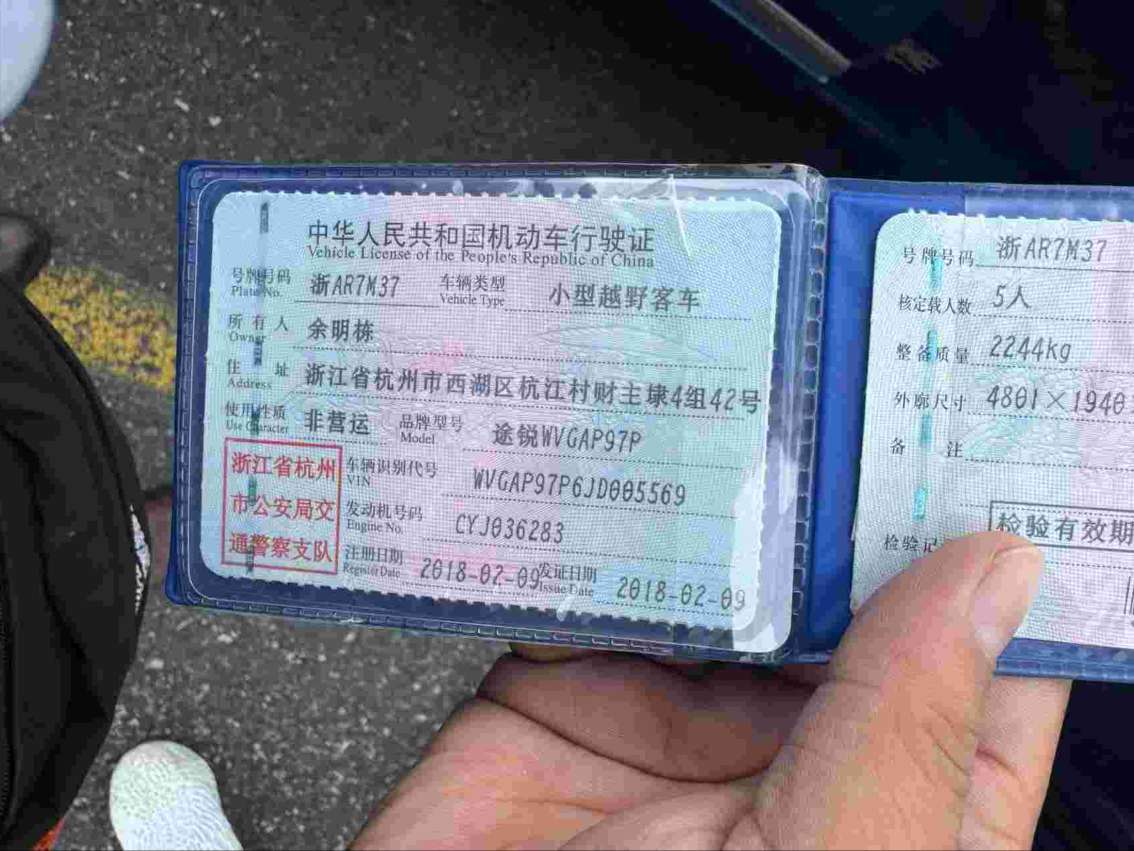 中华人民共和国机动车行驶证
Vehicle License of the People's Republic of China
号牌号码 浙AR7M37 车辆类型 小型越野客车
Plate No. Vehicle Type
所有人 余明栋
Owner
住址 浙江省杭州市西湖区杭江村财主埭4组42号
Address
使用性质 非营运 品牌型号 途锐WVGAP97P
Use Character Model
浙江省杭州
市公安局交
通警察支队
车辆识别代号 WVGAP97P6JD005569
VIN
发动机号码 CYJ036283
Engine No.
注册日期 2018-02-09 发证日期 2018-02-09
Register Date Issue Date
号牌号码 浙AR7M37
核定载人数 5人
整备质量 2244kg
外廓尺寸 4801×1940
备注
检验有效期
检验记